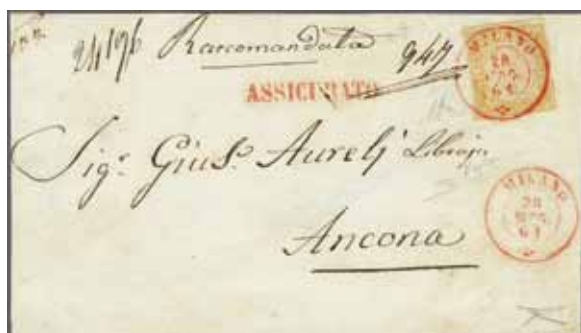 24196 Raccomandata 947
ASSICURATO
MILANO
28
61
Sigr. Giuse. Aurelj Librajo
MILANO
28
61
Ancona